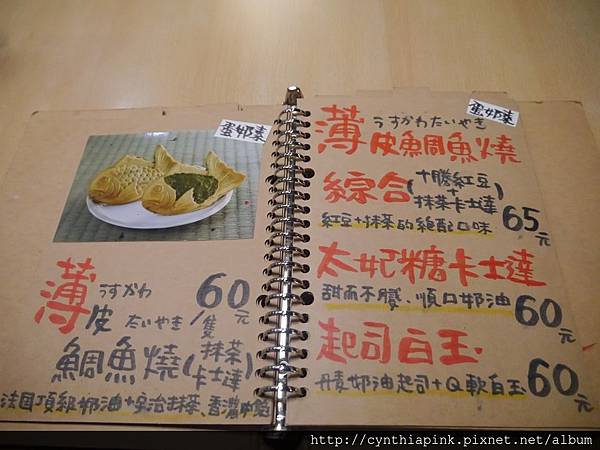 蛋奶素
薄皮
うすかわ
たいやき
60元/隻
鯛魚燒(抹茶卡士達)
法國頂級奶油+宇治抹茶、香濃內餡
蛋奶素
うすかわたいやき
薄皮鯛魚燒
綜合(十勝紅豆+抹茶卡士達)
紅豆+抹茶的絕配口味 65元
太妃糖卡士達
甜而不膩、順口奶油 60元
起司白玉
丹麥奶油起司+Q軟白玉 60元
http://cynthiapink.pixnet.net/album